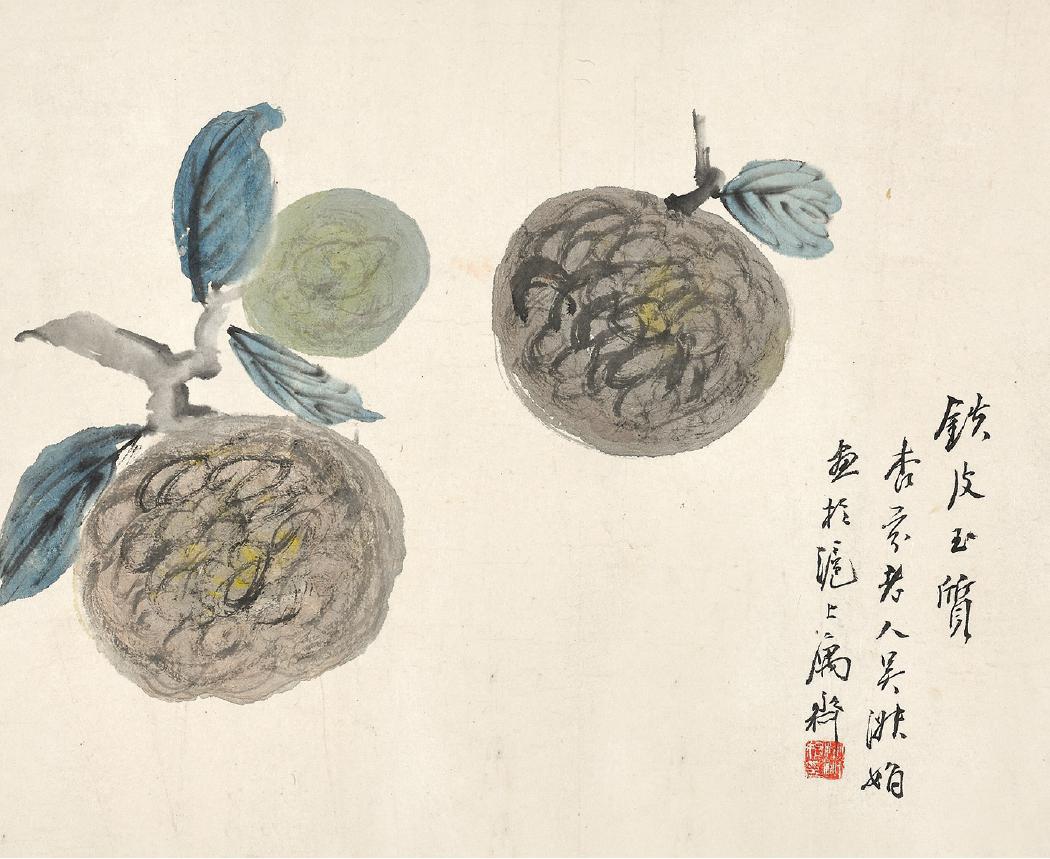 鉄皮玉質
杏芬老人吳淑娟
畫於滬上寓齋